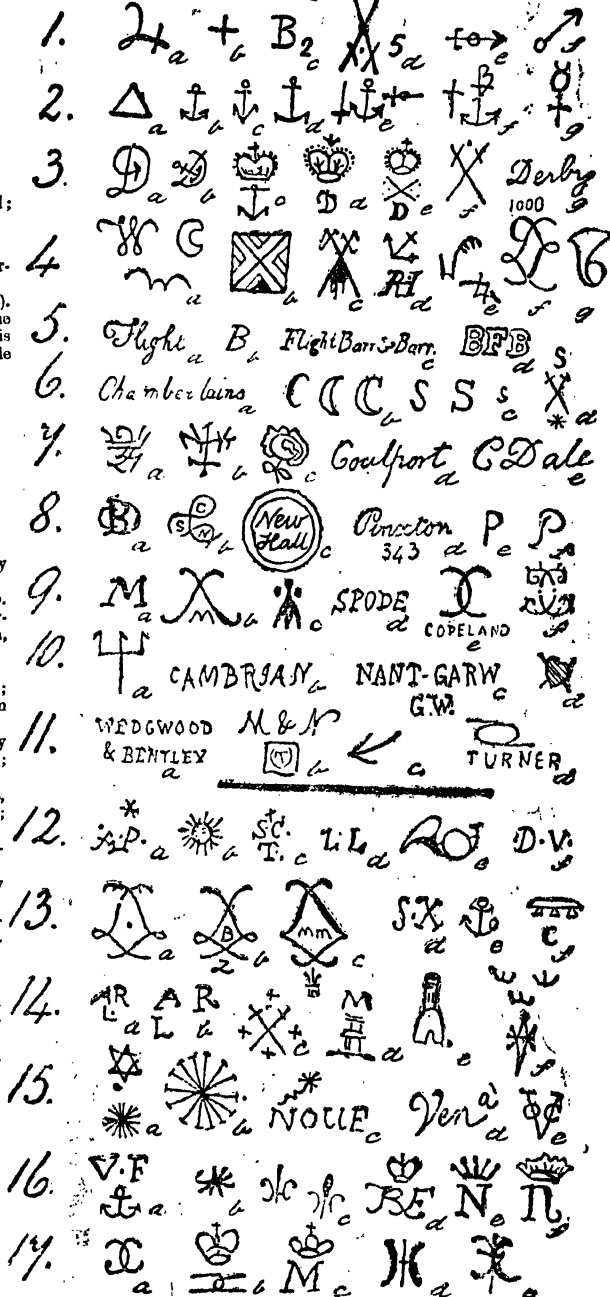 1. a + b B2 c 5 d e f
2. a b c d e B f g
3. D a b c D d D e f Derby 1000 g
4. W C a b c H d e f g
5. Flight a B b Flight Barr & Barr. c BFB d
6. Chamberlains a C C C b S S s c S * d
7. a b c Coalport d C Dale e
8. B a C S N b New Hall c Pinxton 343 d P e P f
9. M a m b c SPODE d COPELAND e f
10. a CAMBRIAN b NANT-GARW G.W. c d
11. WEDGWOOD & BENTLEY a M & N b c TURNER d
12. * a b S C. T. c L L d e D.V. f
13. a B 2 b mm c S.X d e C f
14. AR L. a A R L b c M d e f
15. a b NOUE c Ven a d e
16. V.F a b c BE d N e n f
17. a b M c d e